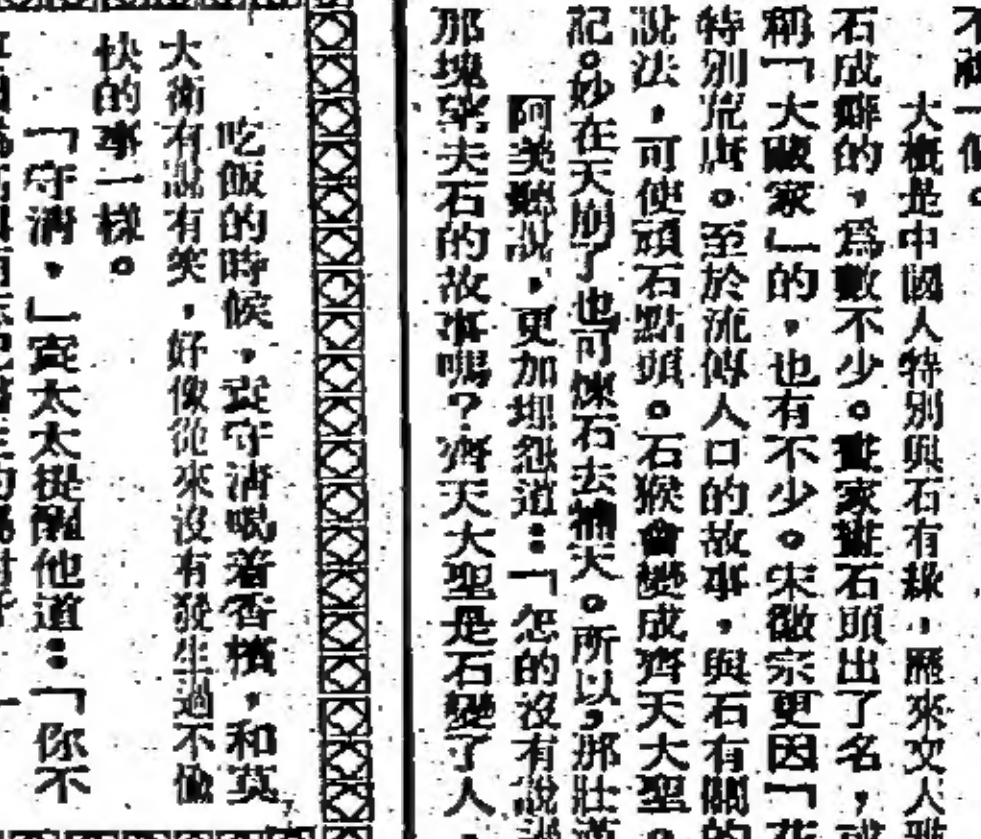 不
一個。
大概是中國人特別與石有緣,歷來文人雅
石成癖的,爲數不少。畫家畫石頭出了名,或
稱「大破家」的,也有不少。宋徽宗更因「花
特別荒唐。至於流傳人口的故事,與石有關的
說法,可使頑石點頭。石猴會變成齊天大聖。
記。妙在天崩了也可煉石去補天。所以,那壯漢
阿美聽說,更加埋怨道:「怎的沒有說
那塊望夫石的故事嗎?齊天大聖是石變了人,
吃飯的時候,袁守清喝着香檳,和莫
大衛有說有笑,好像從來沒有發生過不愉
快的事一樣。
「守清,」袁太太提醒他道:「你不